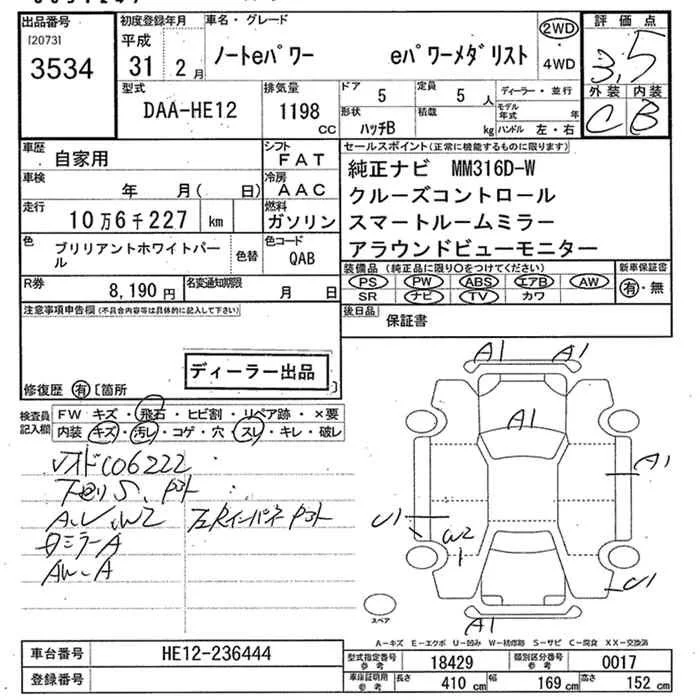 出品番号
[2073]
3534
初度登録年月
平成
31年 2月
車名・グレード
ノートeパワー eパワーメダリスト
2WD
・
4WD
評価点
3.5
外装 内装
C B
型式
DAA-HE12
排気量
1198 cc
ドア 5
定員 5 人
形状 ハッチB
積載 kg
ディーラー・並行
モデル年式 年
ハンドル 左・右
車歴
自家用
シフト
FAT
車検
年 月( 日)
冷房
AAC
走行
10万6千227 km
燃料
ガソリン
色
ブリリアントホワイトパール
色替
色コード
QAB
R券
8,190 円
名変通知期限
月 日
セールスポイント(正常に機能するものに限ります)
純正ナビ MM316D-W
クルーズコントロール
スマートルームミラー
アラウンドビューモニター
装備品(純正品に限り○をつけてください)
PS PW ABS エアB AW
SR ナビ TV カワ
新車保証書
有・無
後日品
保証書
注意事項申告欄(不具合内容等は具体的に記入して下さい)
ディーラー出品
修復歴 有 [箇所 ]
検査員記入欄
FW キズ・飛石・ヒビ割・リペア跡・×要
内装 キズ・汚レ・コゲ・穴・スレ・キレ・破レ
CO6222
下回りS、
A、U、W2
ミラーA
AW-A
A1 A1
A1
A1
U1
W2
U1
A1
スペア
A-キズ E-エクボ U-凹み W-補修跡 S-サビ C-腐食 XX-交換済
車台番号
HE12-236444
登録番号
型式指定番号
参考
18429
類別区分番号
参考
0017
車庫証明用
参考
長さ 410 cm 幅 169 cm 高さ 152 cm